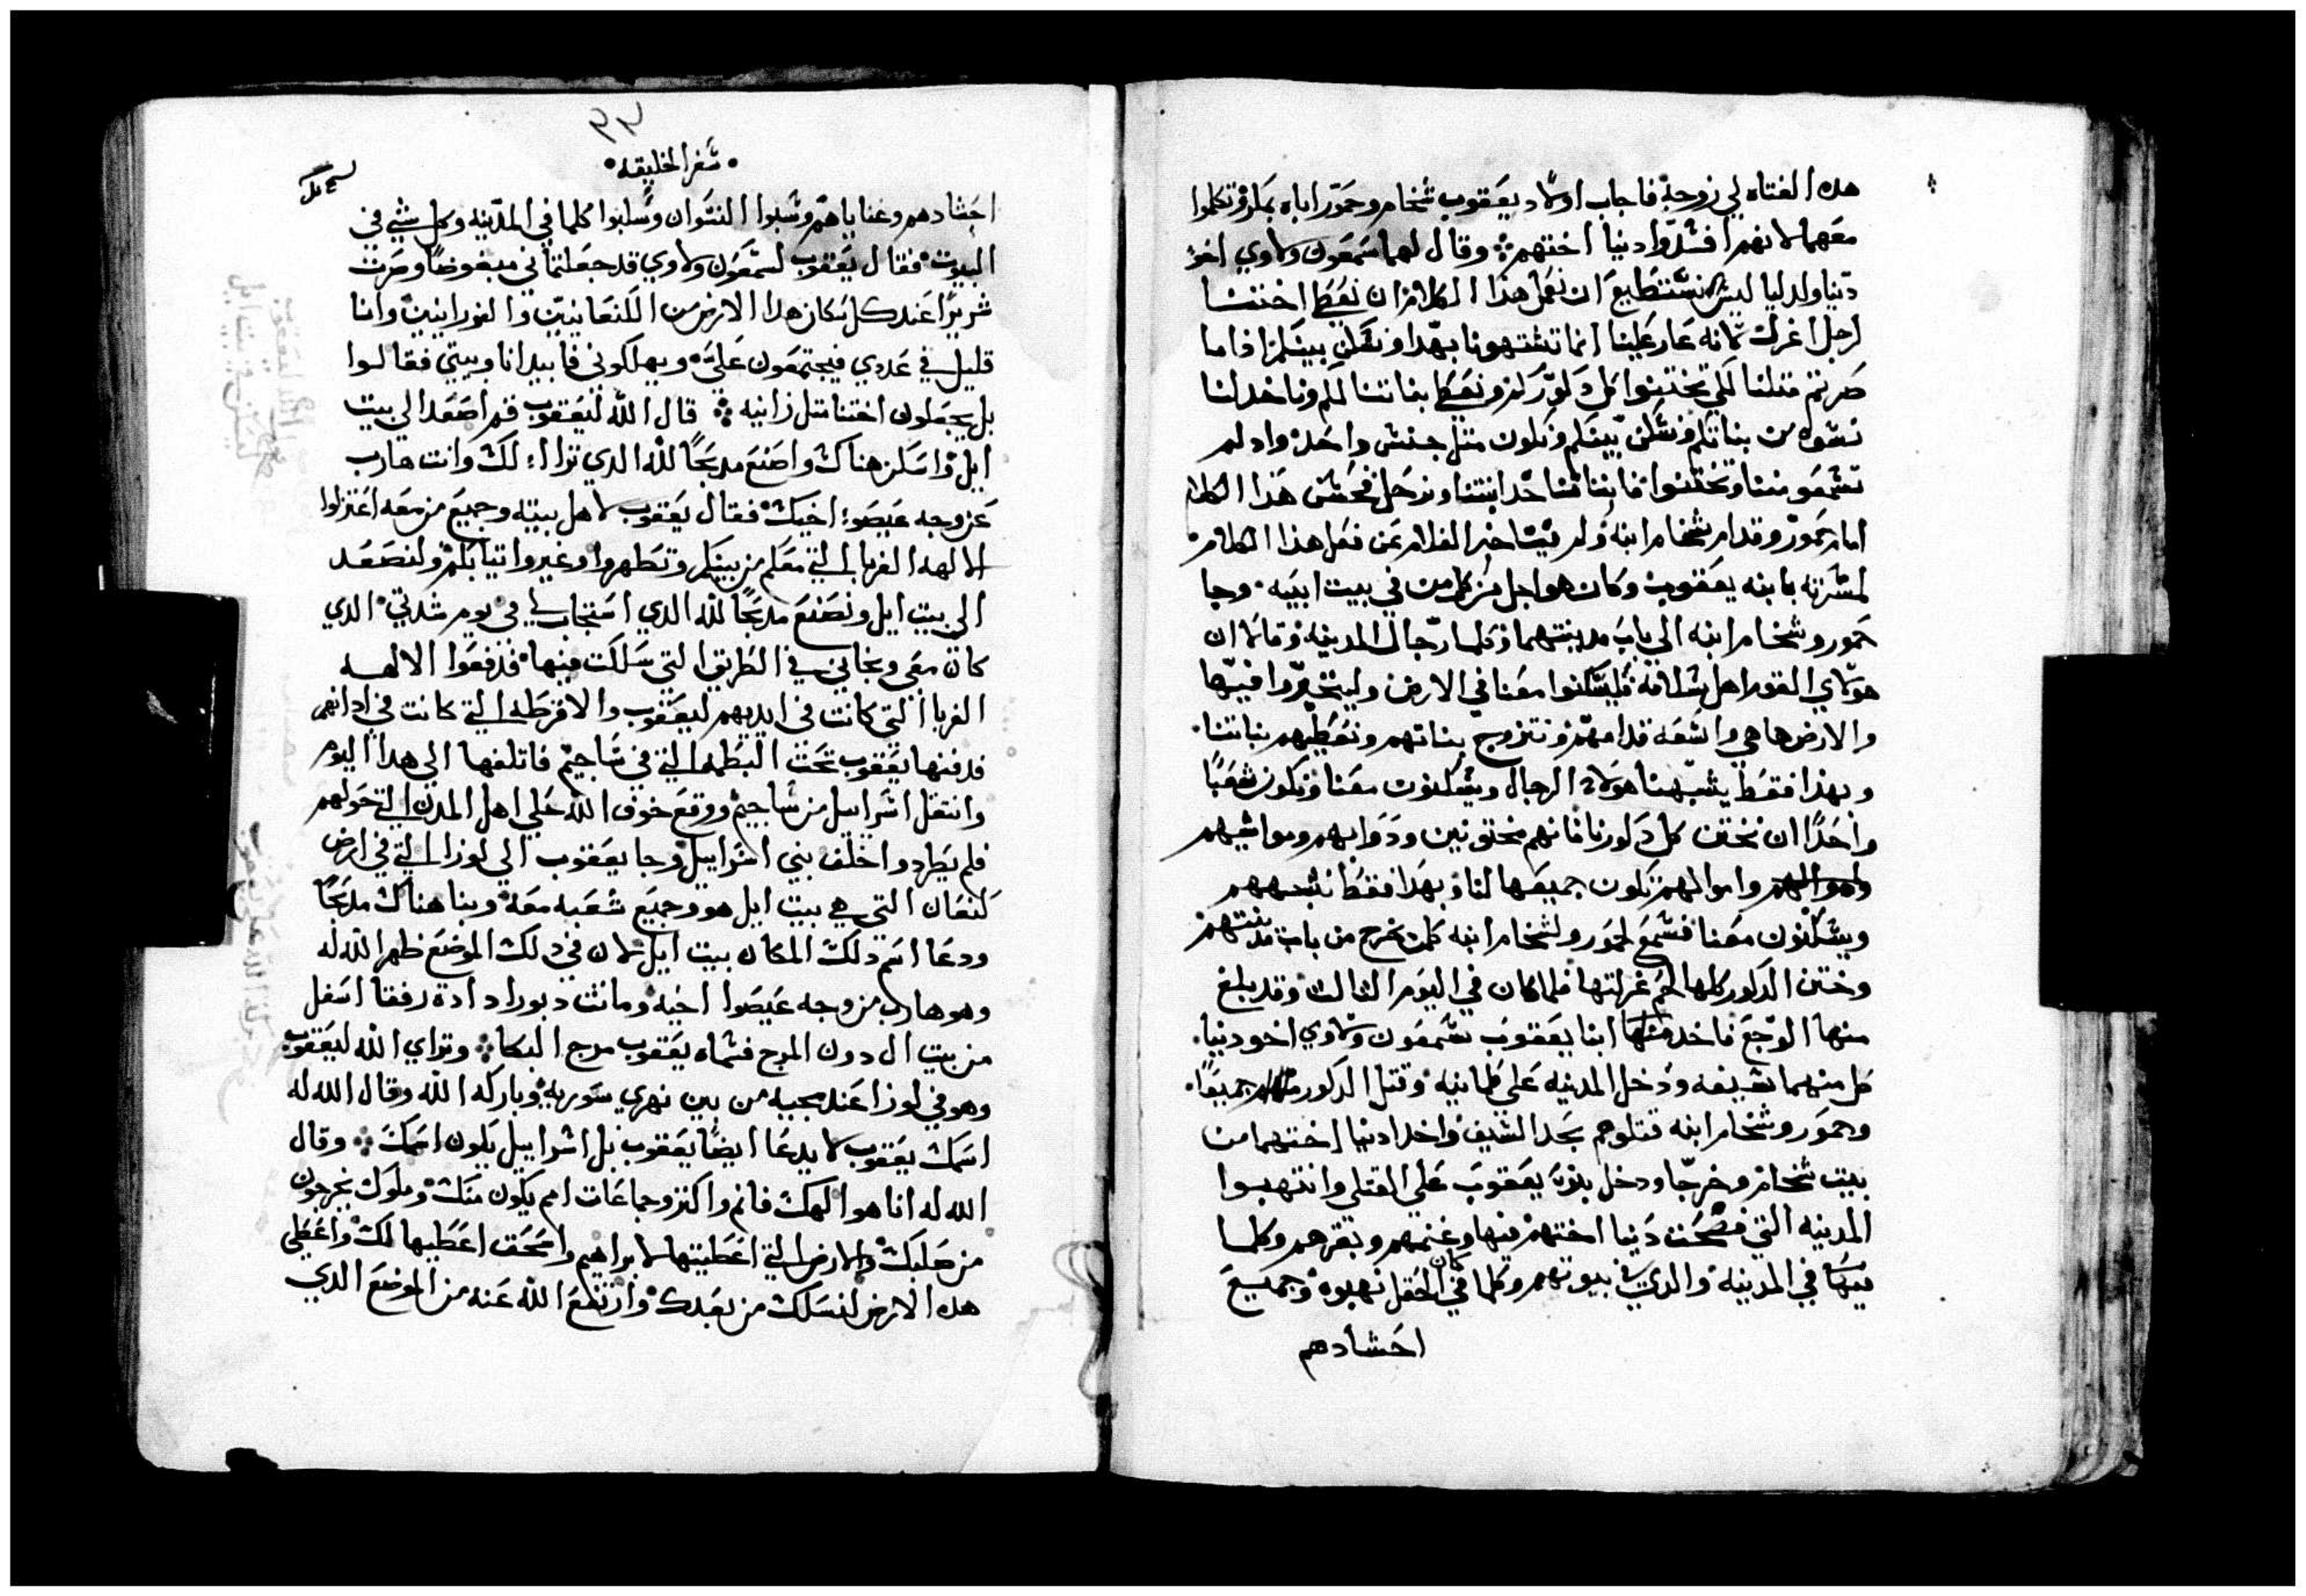 هده الفتاه لي زوجة فاجاب اولاد يعقوب شخام وحمور اباه بمكر وتكلموا
معهما لانهم افسدوا دنيا اختهم ؞ وقال لهما شمعون ولاوي اخو
دنيا ولد ليا ليش نستطيع ان نعمل هذا الكلام ان نعطي اختنا
لرجل اغرل لانه عار علينا انما تشتهونا بهدا ونسكن بينكم اذا ما
صرتم متلنا لكي تختنوا كل دكوركم ونعطي بناتنا لكم وناخد لنا
نسوه من بناتكم ونسكن بينكم ونكون متل جنس واحد وادلم
تسمعو مننا وتختنوا فاننا ناخد ابنتنا ونرحل فحسن هذا الكلام
امام حمور وقدام شخام ابنه ولم يتاخر الغلام عن فعل هذا الكلام
لمسرته بابنه يعقوب وكان هو اجل من كل من في بيت ابيه وجا
حمور وشخام ابنه الي باب مدينتهما وكلما رجال المدينه وقالا ان
هولاي القوم اهل سلامه فليسكنوا معنا في الارض وليتجروا فيها
والارض هاهي واسعه قدامهم ونتزوج بناتهم ونعطيهم بناتنا
وبهذا فقط يشبهنا هولاء الرجال ويسكنون معنا ونكون شعبًا
واحدًا ان نختن كل دكورنا فانهم مختونين ودوابهم ومواشيهم
واموالهم تكون جميعها لنا وبهدا فقط نشبههم
ويسكنون معنا فسمع لحمور ولشخام ابنه كلمن يخرج من باب مدينتهم
وختن الدكور كلها لحم غرلتها فلما كان في اليوم التالت وقد بلغ
منها الوجع فاخد ابنا يعقوب شمعون ولاوي اخو دنيا
كل منهما سيفه ودخل المدينه علي طمانينه وقتل الدكور جميعًا
وحمور وشخام ابنه قتلوهم بحد السيف واخدا دنيا اختهما من
بيت شخام وخرجا ودخل بنو يعقوب علي القتلي وانتهبوا
المدينه التي فضحت دنيا اختهم فيها وغنمهم وبقرهم وكلما
فيها في المدينه والدي في بيوتهم وكلما كان في الحقل نهبوه وجميع
اجسادهم
سفر الخليقه
اجسادهم وغناياهم وسبوا النسوان وسلبوا كلما في المدينه وكل شي في
البيوت فقال يعقوب لشمعون ولاوي قد جعلتماني مبغوضًا وصرت
شريرًا عند كل سكان هدا الارض من الكنعانيين والفورانيين وانا
قليل في عددي فيجتمعون علي ويهلكوني فابيد انا وبيتي فقالوا
بل يجعلون اختنا متل زانيه ؞ قال الله ليعقوب قم اصعد الي بيت
ايل واسكن هناك واصنع مدبحًا لله الدي تراا لك وانت هارب
عن وجه عيصو اخيك فقال يعقوب لاهل بيته وجميع من معه اعتزلوا
الالهه الغربا التي معكم من بينكم وتطهروا وغيروا تيابكم ولنصعد
الي بيت ايل ونصنع مدبحًا لله الدي استجاب لي في يوم شدتي الدي
كان معي ونجاني في الطريق التي سلكت فيها فدفعوا الالهه
الغربا التي كانت في ايديهم ليعقوب والاقرطه التي كانت في ادانهم
فدفنها يعقوب تحت البطمه التي في ساجيم فاتلفها الي هدا اليوم
وانتقل اسراييل من ساجيم ووقع خوف الله علي اهل المدن التي حولهم
فلم يطردوا خلف بني اسراييل وجا يعقوب الي لوزا التي في ارض
كنعان التي هي بيت ايل هو وجميع شعبه معه وبنا هناك مدبحًا
ودعا اسم دلك المكان بيت ايل لان في دلك الموضع ظهر الله له
وهو هارب من وجه عيصوا اخيه وماتت دبورا دادة رفقا اسفل
من بيت ال دون المرج فسماه يعقوب مرج البكا ؞ وتراي الله ليعقوب
وهو في لوزا عند مجيه من بين نهري سوريه وباركه الله وقال الله له
اسمك يعقوب لا يدعا ايضًا يعقوب بل اسراييل يكون اسمك ؞ وقال
الله له انا هو الهك فانم واكتر وجماعات امم يكون منك وملوك يخرجون
من صلبك والارض التي اعطيتها لابراهيم واسحق اعطيها لك واعطي
هده الارض لنسلك من بعدك وارتفع الله عنه من الموضع الدي